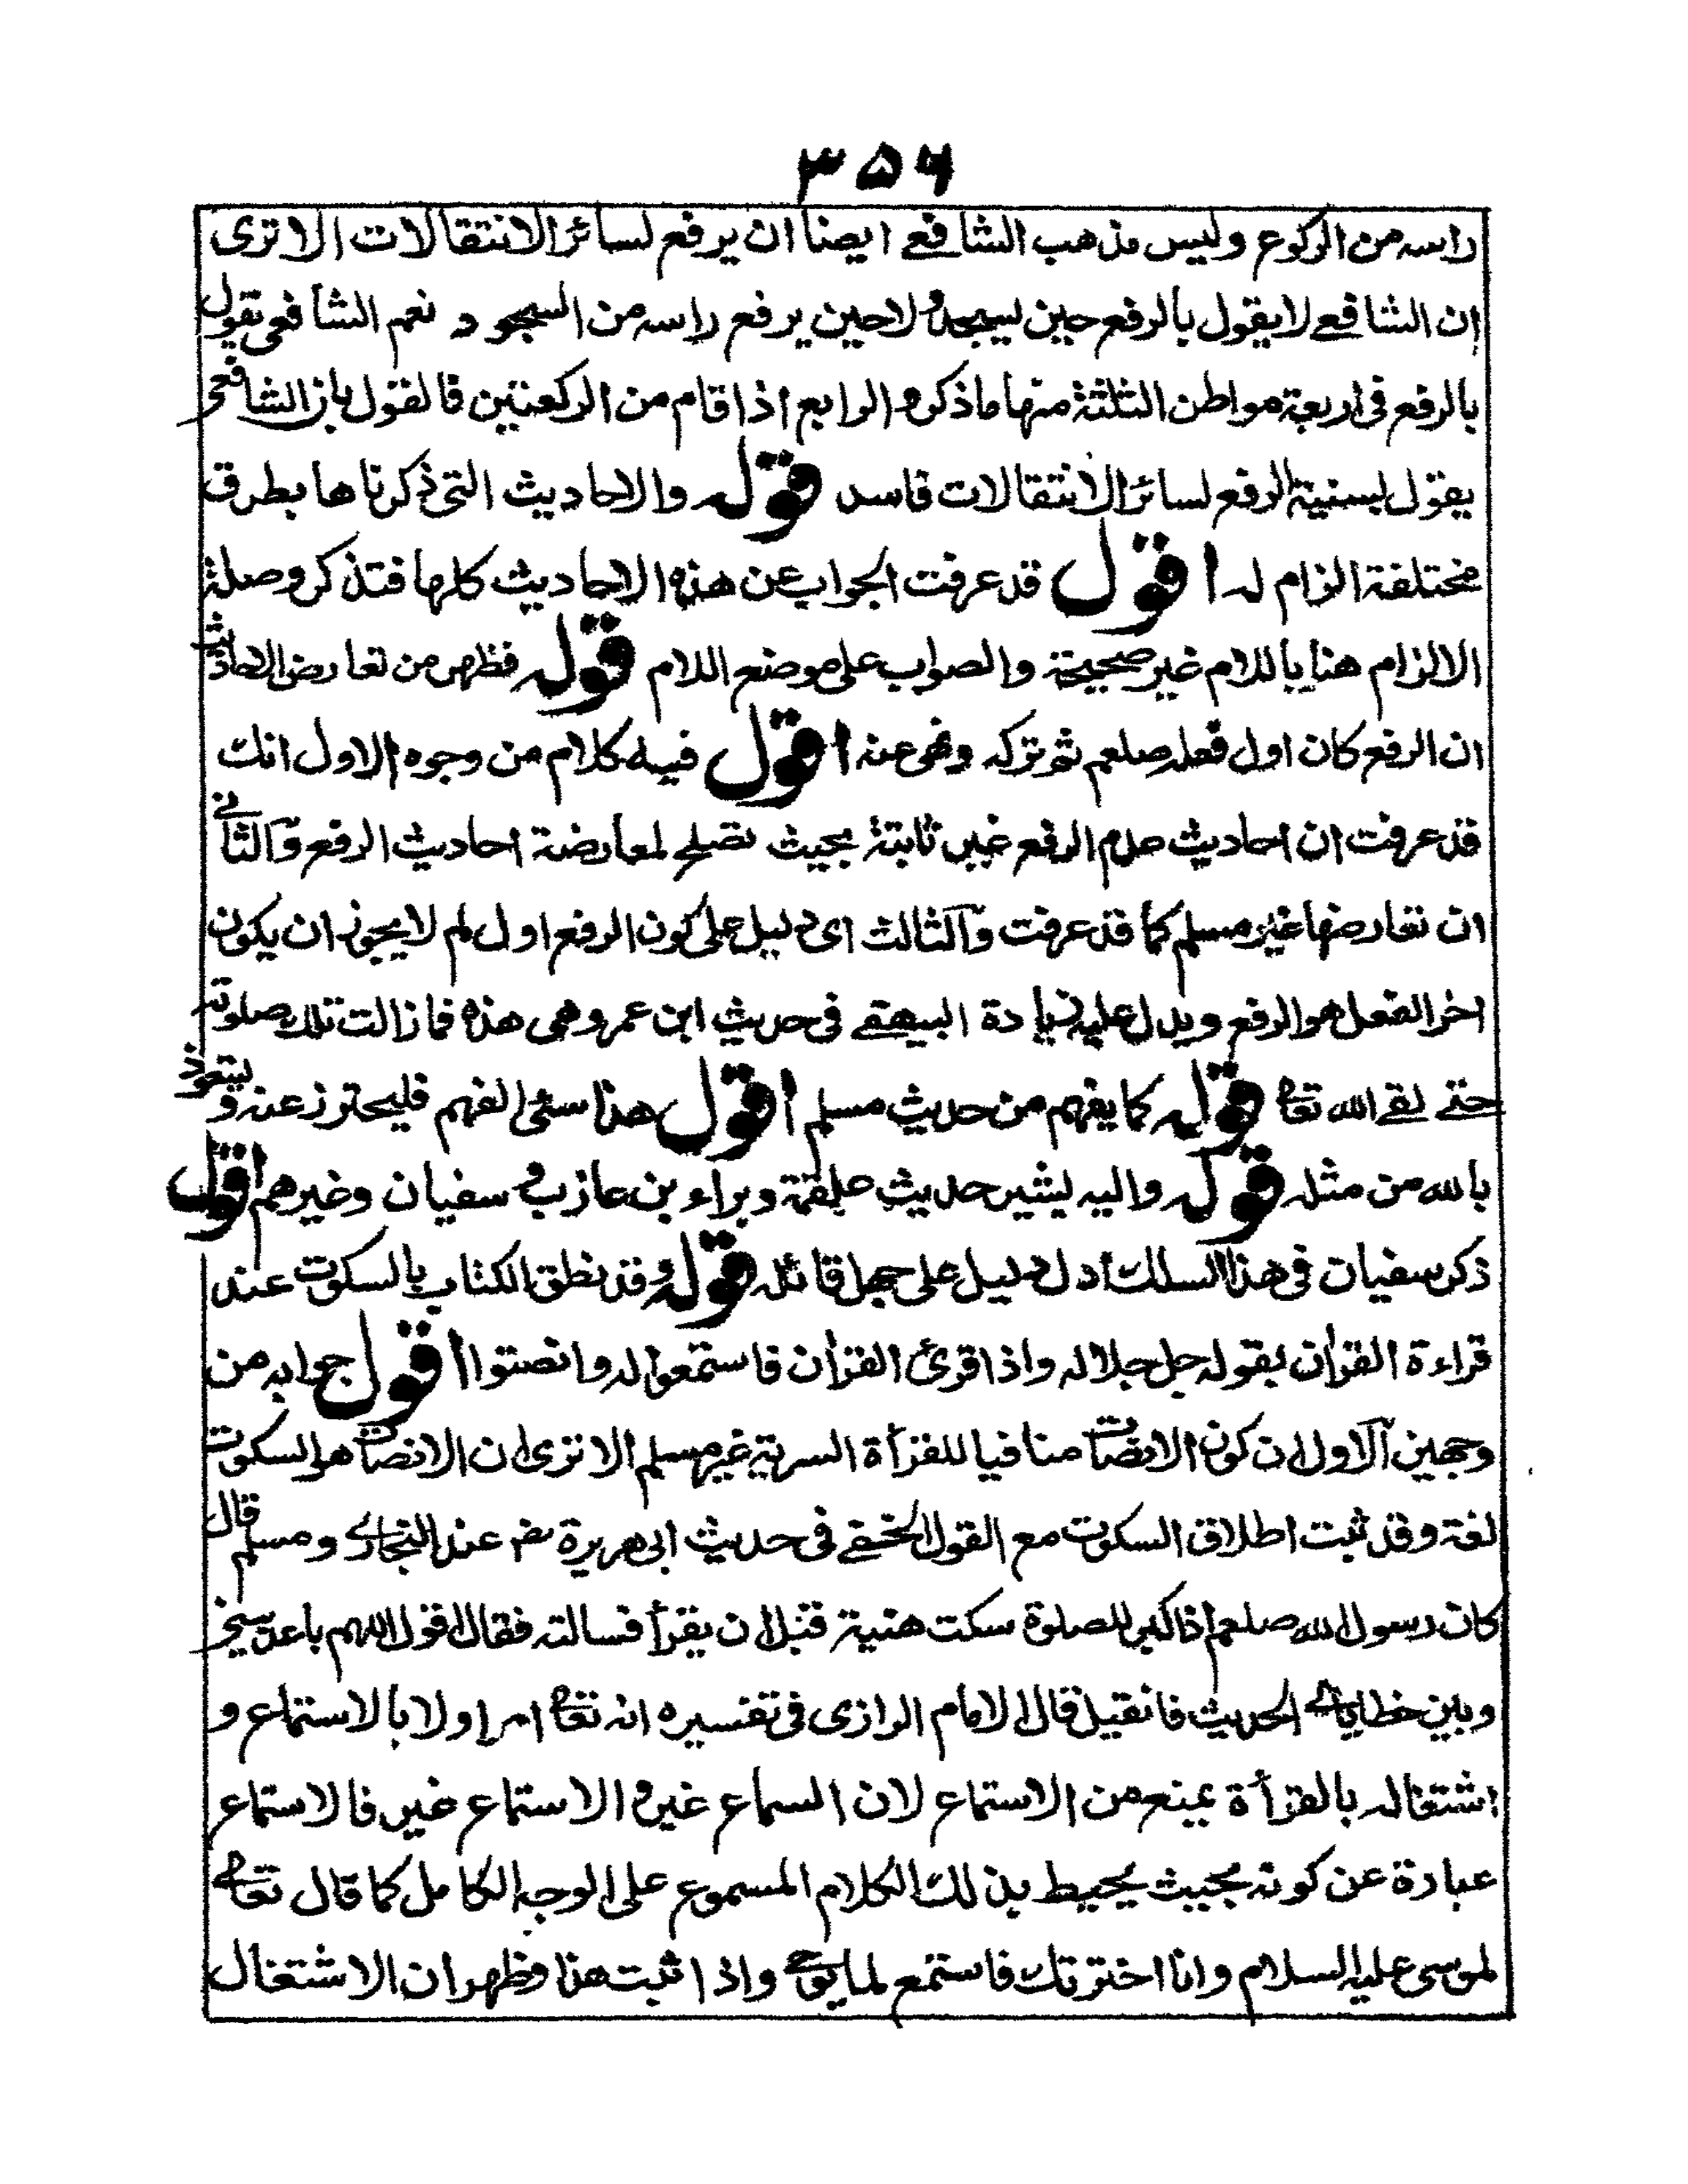 ۳۵۶
راسه من الركوع وليس مذهب الشافعے ايضا ان يرفع لسائر الانتقالات الا ترى
ان الشافعے لا يقول بالرفع حين يسجد ولا حين يرفع راسه من السجود نعم الشافعى يقول
بالرفع فى اربعة مواطن الثلثة منها ما ذكر والرابع اذا قام من الركعتين فالقول بان الشافعى
يقول بسنية الرفع لسائر الانتقالات فاسد قوله والاحاديث التى ذكرناها بطرق
مختلفة الزام له اقول قد عرفت الجواب عن هذه الاحاديث كلها فتذكر وصلة
الالزام هنا باللام غير صحيحة والصواب على موضع اللام قوله فظهر من تعارض الاحاديث
ان الرفع كان اول فعله صلعم ثم تركه ونهى عنه اقول فيه كلام من وجوه الاول انك
قد عرفت ان احاديث عدم الرفع غير ثابتة بحيث تصلح لمعارضة احاديث الرفع والثانے
ان تعارضها غير مسلم كما قد عرفت والثالث اى دليل على كون الرفع اول لم لا يجوز ان يكون
اخر الفعل هو الرفع ويدل عليه زيادة البيهقے فى حديث ابن عمر وهى هذه فما زالت تلك صلوته
حتے لقے الله تعالے قوله كما يفهم من حديث مسلم اقول هذا سئ الفهم فليحترز عنه و ليتعوذ
بالله من مثله قوله واليه يشير حديث علقمة وبراء بن عازب و سفيان وغيرهم اقول
ذكر سفيان فى هذا السلك أدل دليل على جهل قائله قوله وقد نطق الكتاب بالسكوت عند
قراءة القرأن بقوله جل جلاله واذا قرئ القرأن فاستمعوا له وانصتوا اقول جوابه من
وجهين الاول ان كون الانصات منافيا للقرأة السرية غير مسلم الا ترى ان الانصات هو السكوت
لغة وقد ثبت اطلاق السكوت مع القول الخفے فى حديث ابى هريرة رضـ عند البخارے ومسلم قال
كان رسول الله صلعم اذا كبر للصلوة سكت هنية قبل ان يقرأ فسالته فقال اقول اللهم باعد بينى
وبين خطاياے الحديث فان قيل قال الامام الرازى فى تفسيره انه تعالے امر اولا بالاستماع و
اشتغاله بالقرأة يمنع من الاستماع لان السماع غير والاستماع غير فالاستماع
عبارة عن كونه بحيث يحيط بذلك الكلام المسموع على الوجه الكامل كما قال تعالے
لموسى عليه السلام وانا اخترتك فاستمع لما يوحے واذا ثبت هذا فظهر ان الاشتغال